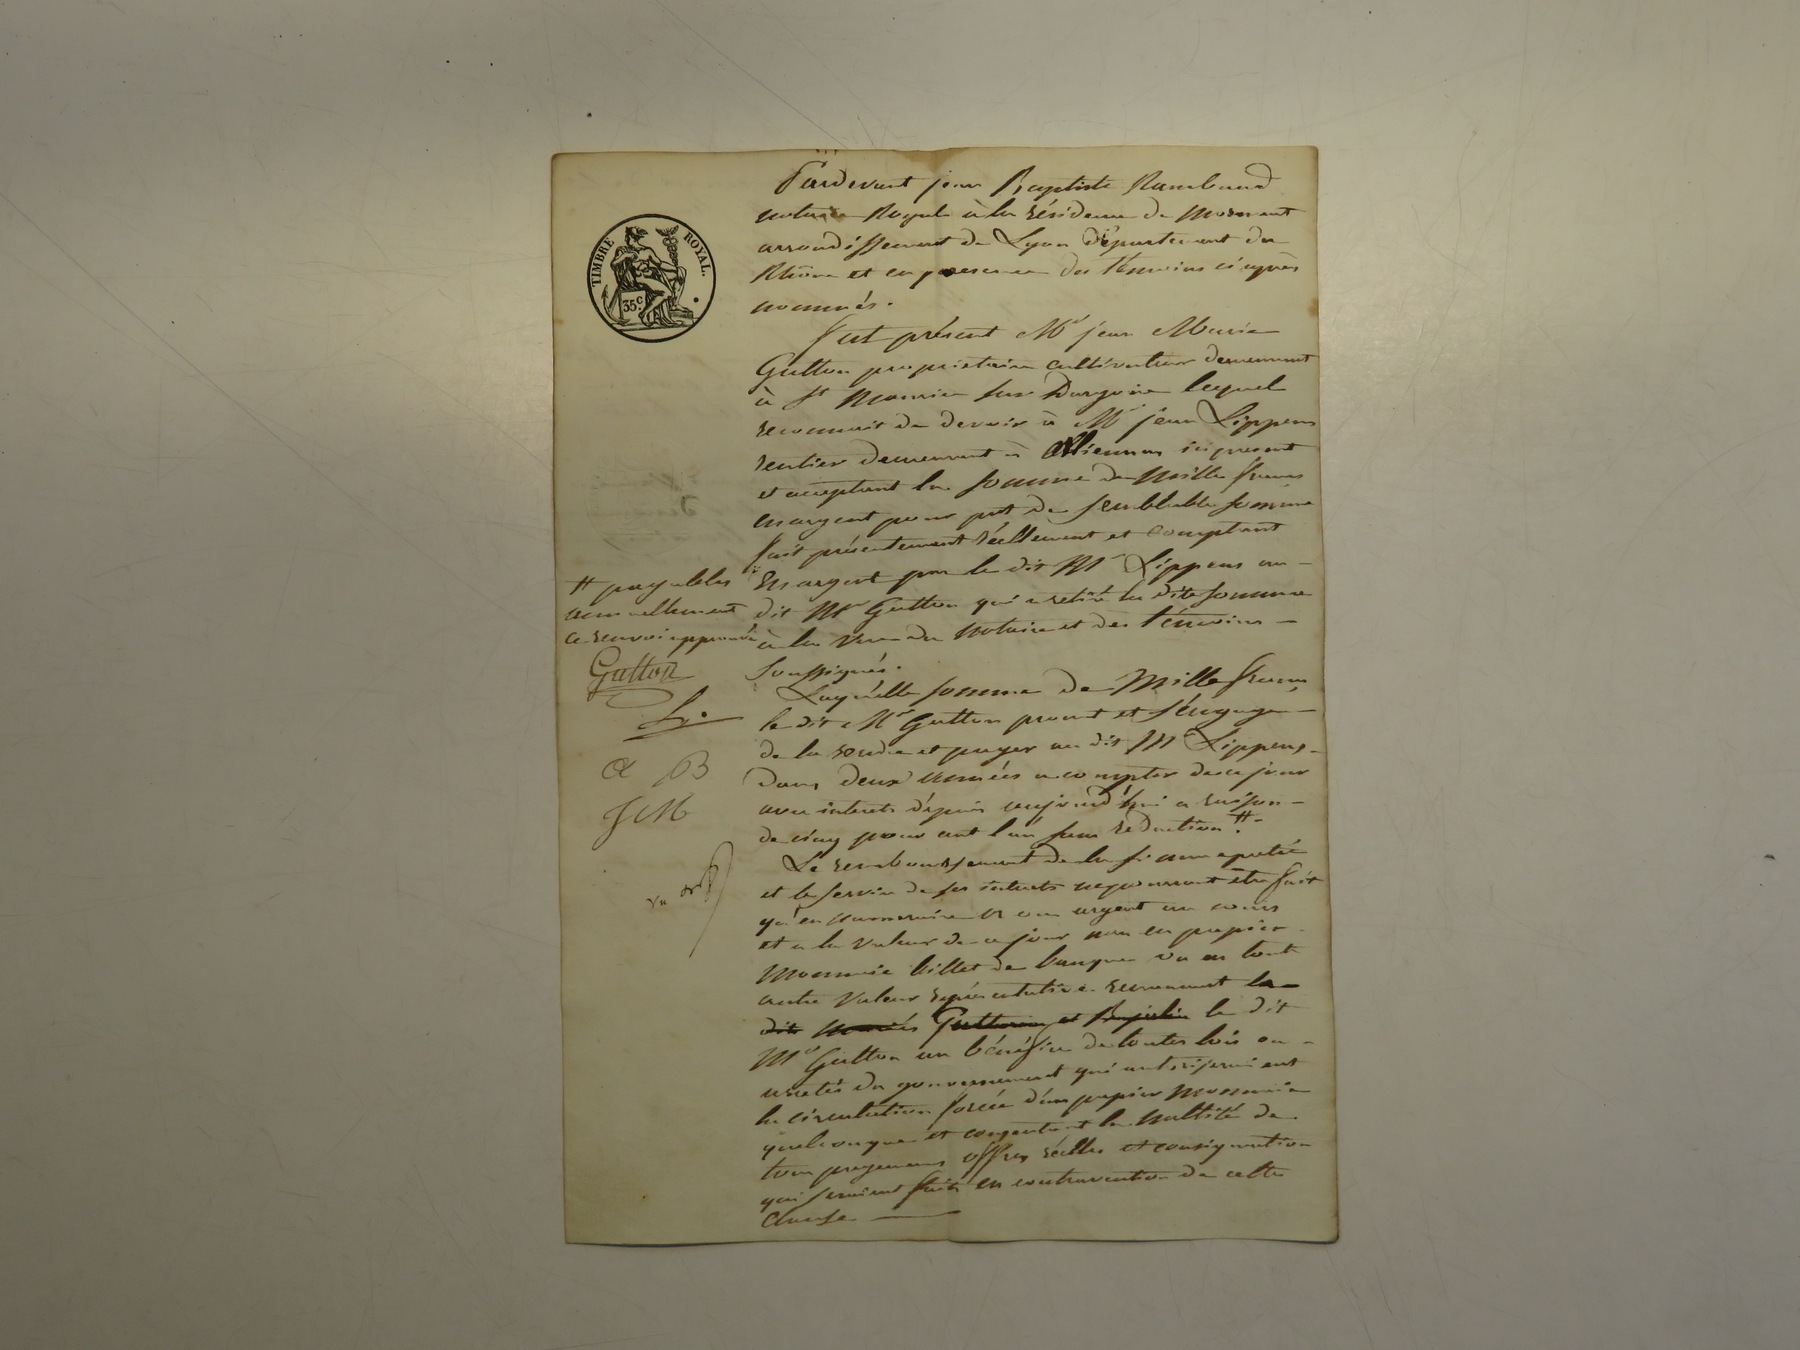 TIMBRE ROYAL.
35c
Pardevant jean Baptiste Rambaud
notaire Royal à la résidence de Mornant
arrondissement de Lyon département du
Rhône et en presence des témoins ci après
nommés.
fut présent Mr jean Marie
Gutton propriétaire cultivateur demeurant
à St Maurice sur Dargoire lequel
reconnait de devoir à Mr jean Lippens
rentier demeurant à ici present
et acceptant la somme de Mille francs
en argent pour pret de semblable somme
fait présentement réellement et comptant
En argent par le dit Mr Lippens au
dit Mr Gutton qui a retiré la dite somme
à la vue du Notaire et des témoins
soussignés.
Laquelle somme de Mille francs
le dit Mr Gutton promet et s'engage
de la rendre et payer au dit Mr Lippens
dans deux années a compter de ce jour
avec interets dépuis aujourd'hui a raison
de cinq pour cent l'an sans reduction #
Le remboursement de la
et le service de ses interets ne pourront être fait
qu'en numeraire or ou argent au cours
et a la valeur de ce jour non en papier
Monnaie billet de banque ou en tout
autre valeur représentative renonçant la
dits Mariés et le dit
Mr Gutton au bénéfice de toutes lois ou
arretés du gouvernement qui autoriseraient
la circulation forcée d'un papier Monnaie
quelconque et consentent la nullité de
tous payemens offres réelles et consignation
qui seraient faits en contravention de cette
clause
# payables
annuellement
ce renvoi approuvé
Gutton
B
JM